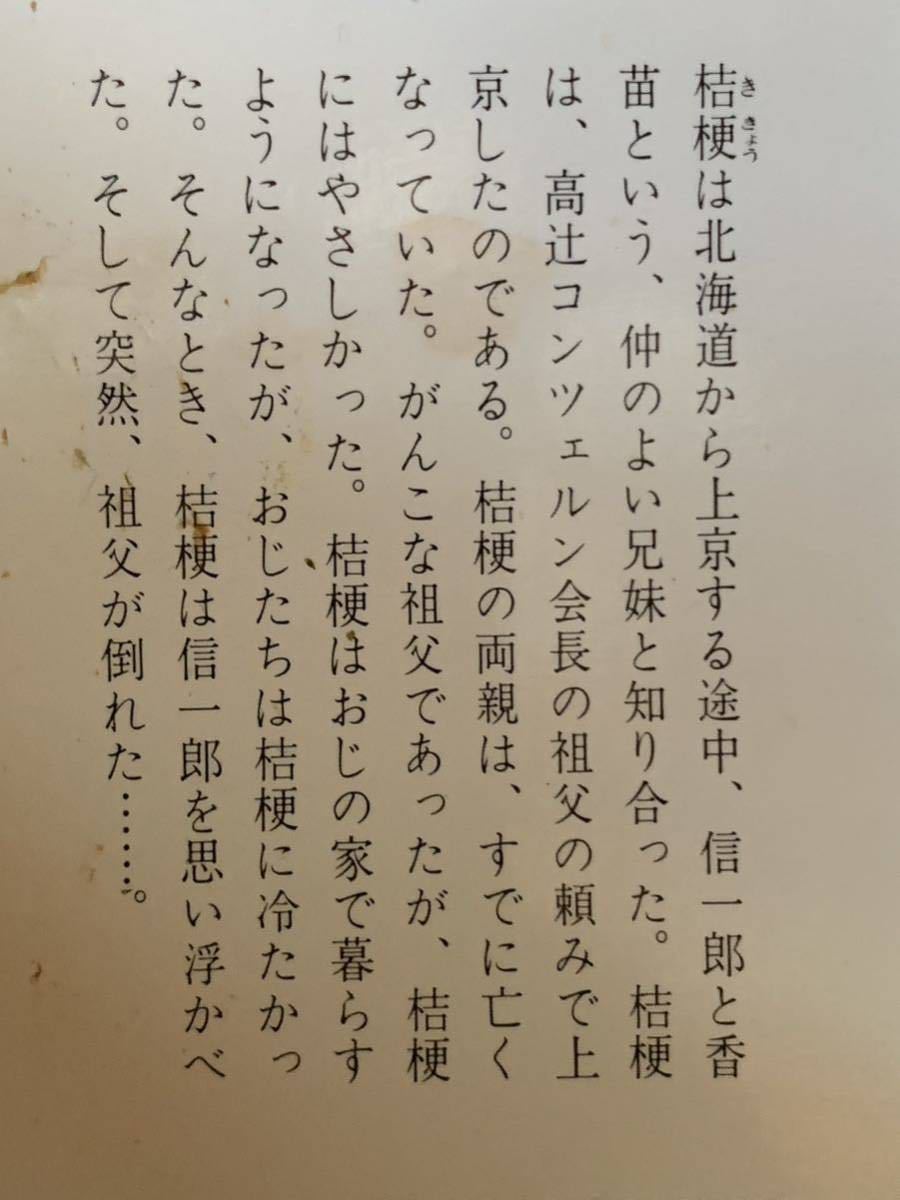 桔梗は北海道から上京する途中、信一郎と香
苗という、仲のよい兄妹と知り合った。桔梗
は、高辻コンツェルン会長の祖父の頼みで上
京したのである。桔梗の両親は、すでに亡く
なっていた。がんこな祖父であったが、桔梗
にはやさしかった。桔梗はおじの家で暮らす
ようになったが、おじたちは桔梗に冷たかっ
た。そんなとき、桔梗は信一郎を思い浮かべ
た。そして突然、祖父が倒れた……。
ききょう